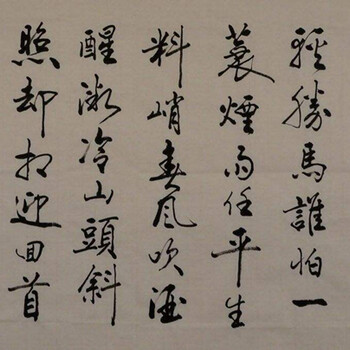 輕勝馬誰怕一
蓑煙雨任平生
料峭春風吹酒
醒微冷山頭斜
照却相迎回首